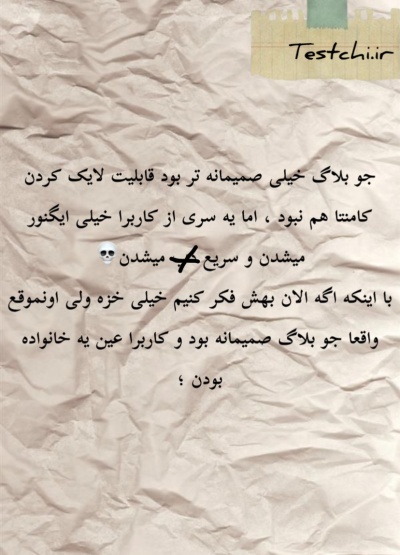 Testchi.ir
جو بلاگ خیلی صمیمانه تر بود قابلیت لایک کردن
کامنتا هم نبود ، اما یه سری از کاربرا خیلی ایگنور
میشدن و سریع میشدن💀
با اینکه اگه الان بهش فکر کنیم خیلی خزه ولی اونموقع
واقعا جو بلاگ صمیمانه بود و کاربرا عین یه خانواده
بودن ؛